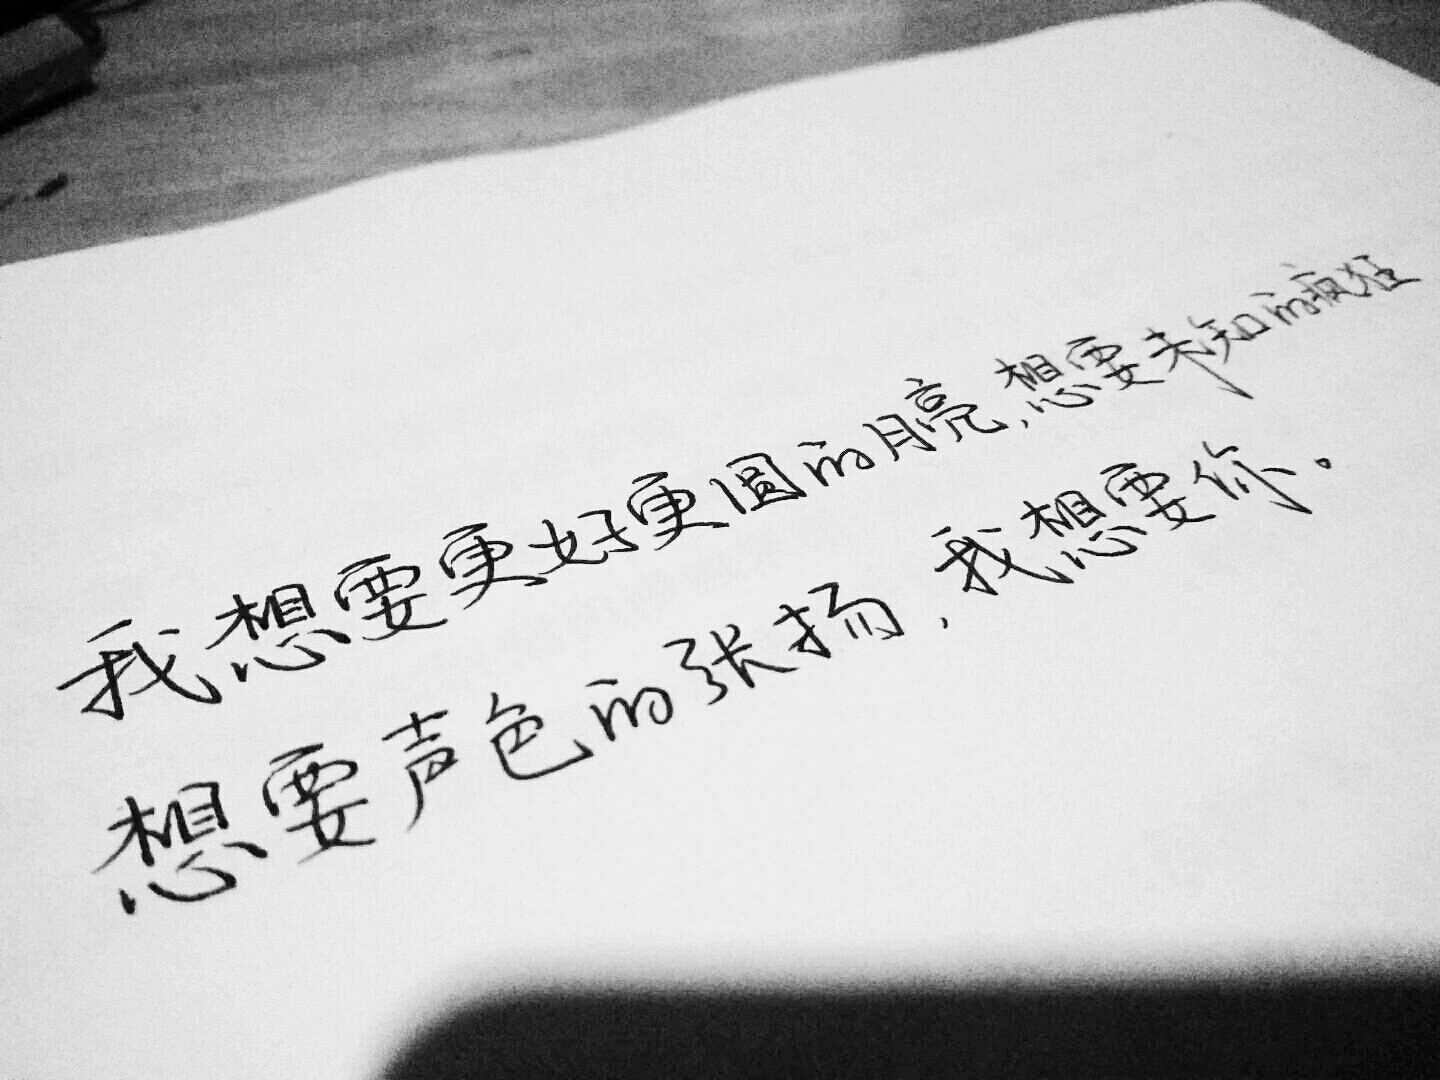 我想要更好更圆的月亮,想要未知的疯狂
想要声色的张扬,我想要你。